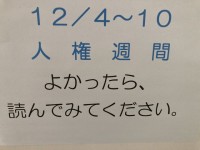 １２／４～１０
人権週間
よかったら、
読んでみてください。